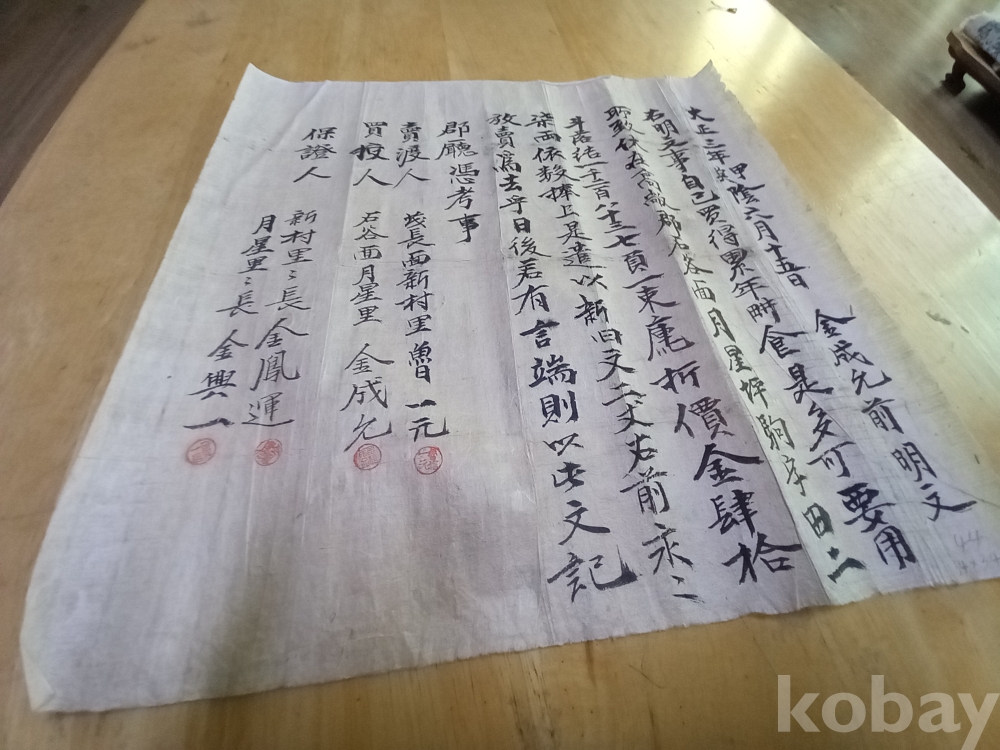 大正三年 甲陰六月十五日 金成允前明文
右明文事自己買得累年畊食是多可要用
所致伏在高敞郡石谷面月星坪駒字田二
斗落結一十一百八十三七頁一束庫折價金肆拾
柒兩依数捧上是遣以新旧文二丈右前永〻
放賣爲去乎日後若有言端則以此文記
郡廳憑考事
賣渡人 長面新村里 魯一元
買投人 石谷面月星里 金成允
保證人 新村里〻長 金鳳運
月星里〻長 金興一
44
kobay